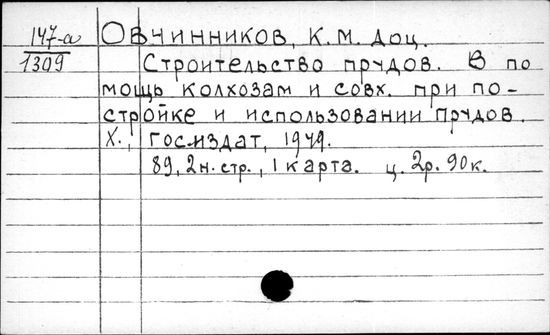 147-а
1309
Овчинников, К.М. доц.
Строительство прудов. В по
мощь колхозам и совх. при по-
стройке и использовании прудов.
Х., Госиздат, 1949.
89, 2н. стр., 1 карта. ц. 2р. 90к.